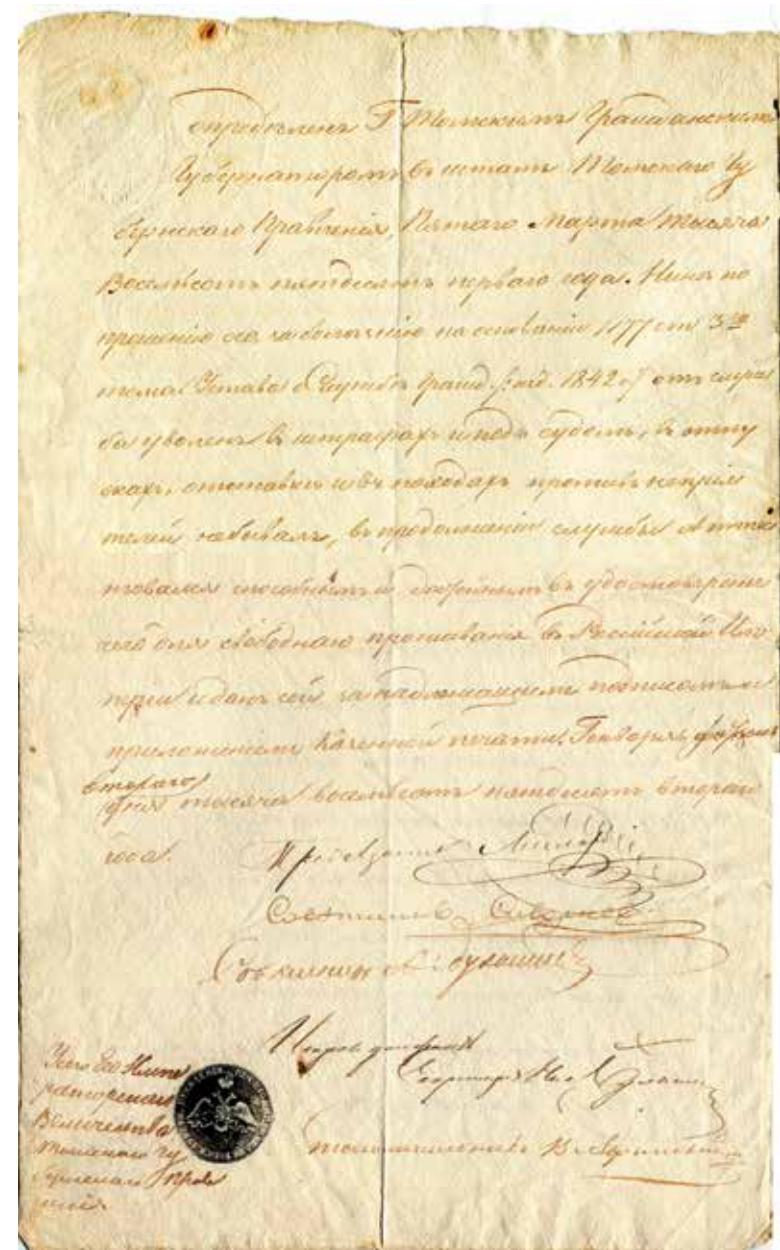 опредѣленъ Г. Томскимъ Гражданскимъ
Губернаторомъ въ штатъ Томскаго Гу
бернскаго Правленія, Пятаго Марта тысяча
Восемьсотъ пятдесятъ перваго года. Нынѣ по
прошенію его за болѣзнію на основаніи 1177 ст. 3го
тома Устава о Службѣ Гражд. (: изд. 1842 г:) отъ служ
бы уволенъ въ штрафахъ и подъ судомъ, въ отпу
скахъ, отставкѣ и въ походахъ противъ непрія
телей небывалъ, въ продолженіи службы Аттес
товался способнымъ и достойнымъ въ удостовѣреніе
чего для свободнаго проживанія въ Россійской Им
періи и данъ сей за надлежащимъ подписомъ и
приложеніемъ Казенной печати. Генваря
втораго
дня тысяча восемьсотъ пятдесятъ втораго
года.
Совѣтникъ
Совѣтникъ
Секретарь
Столоначальникъ
Печ. Его Импе
раторскаго
Величества
Томскаго Гу
бернскаго Прав
ленія